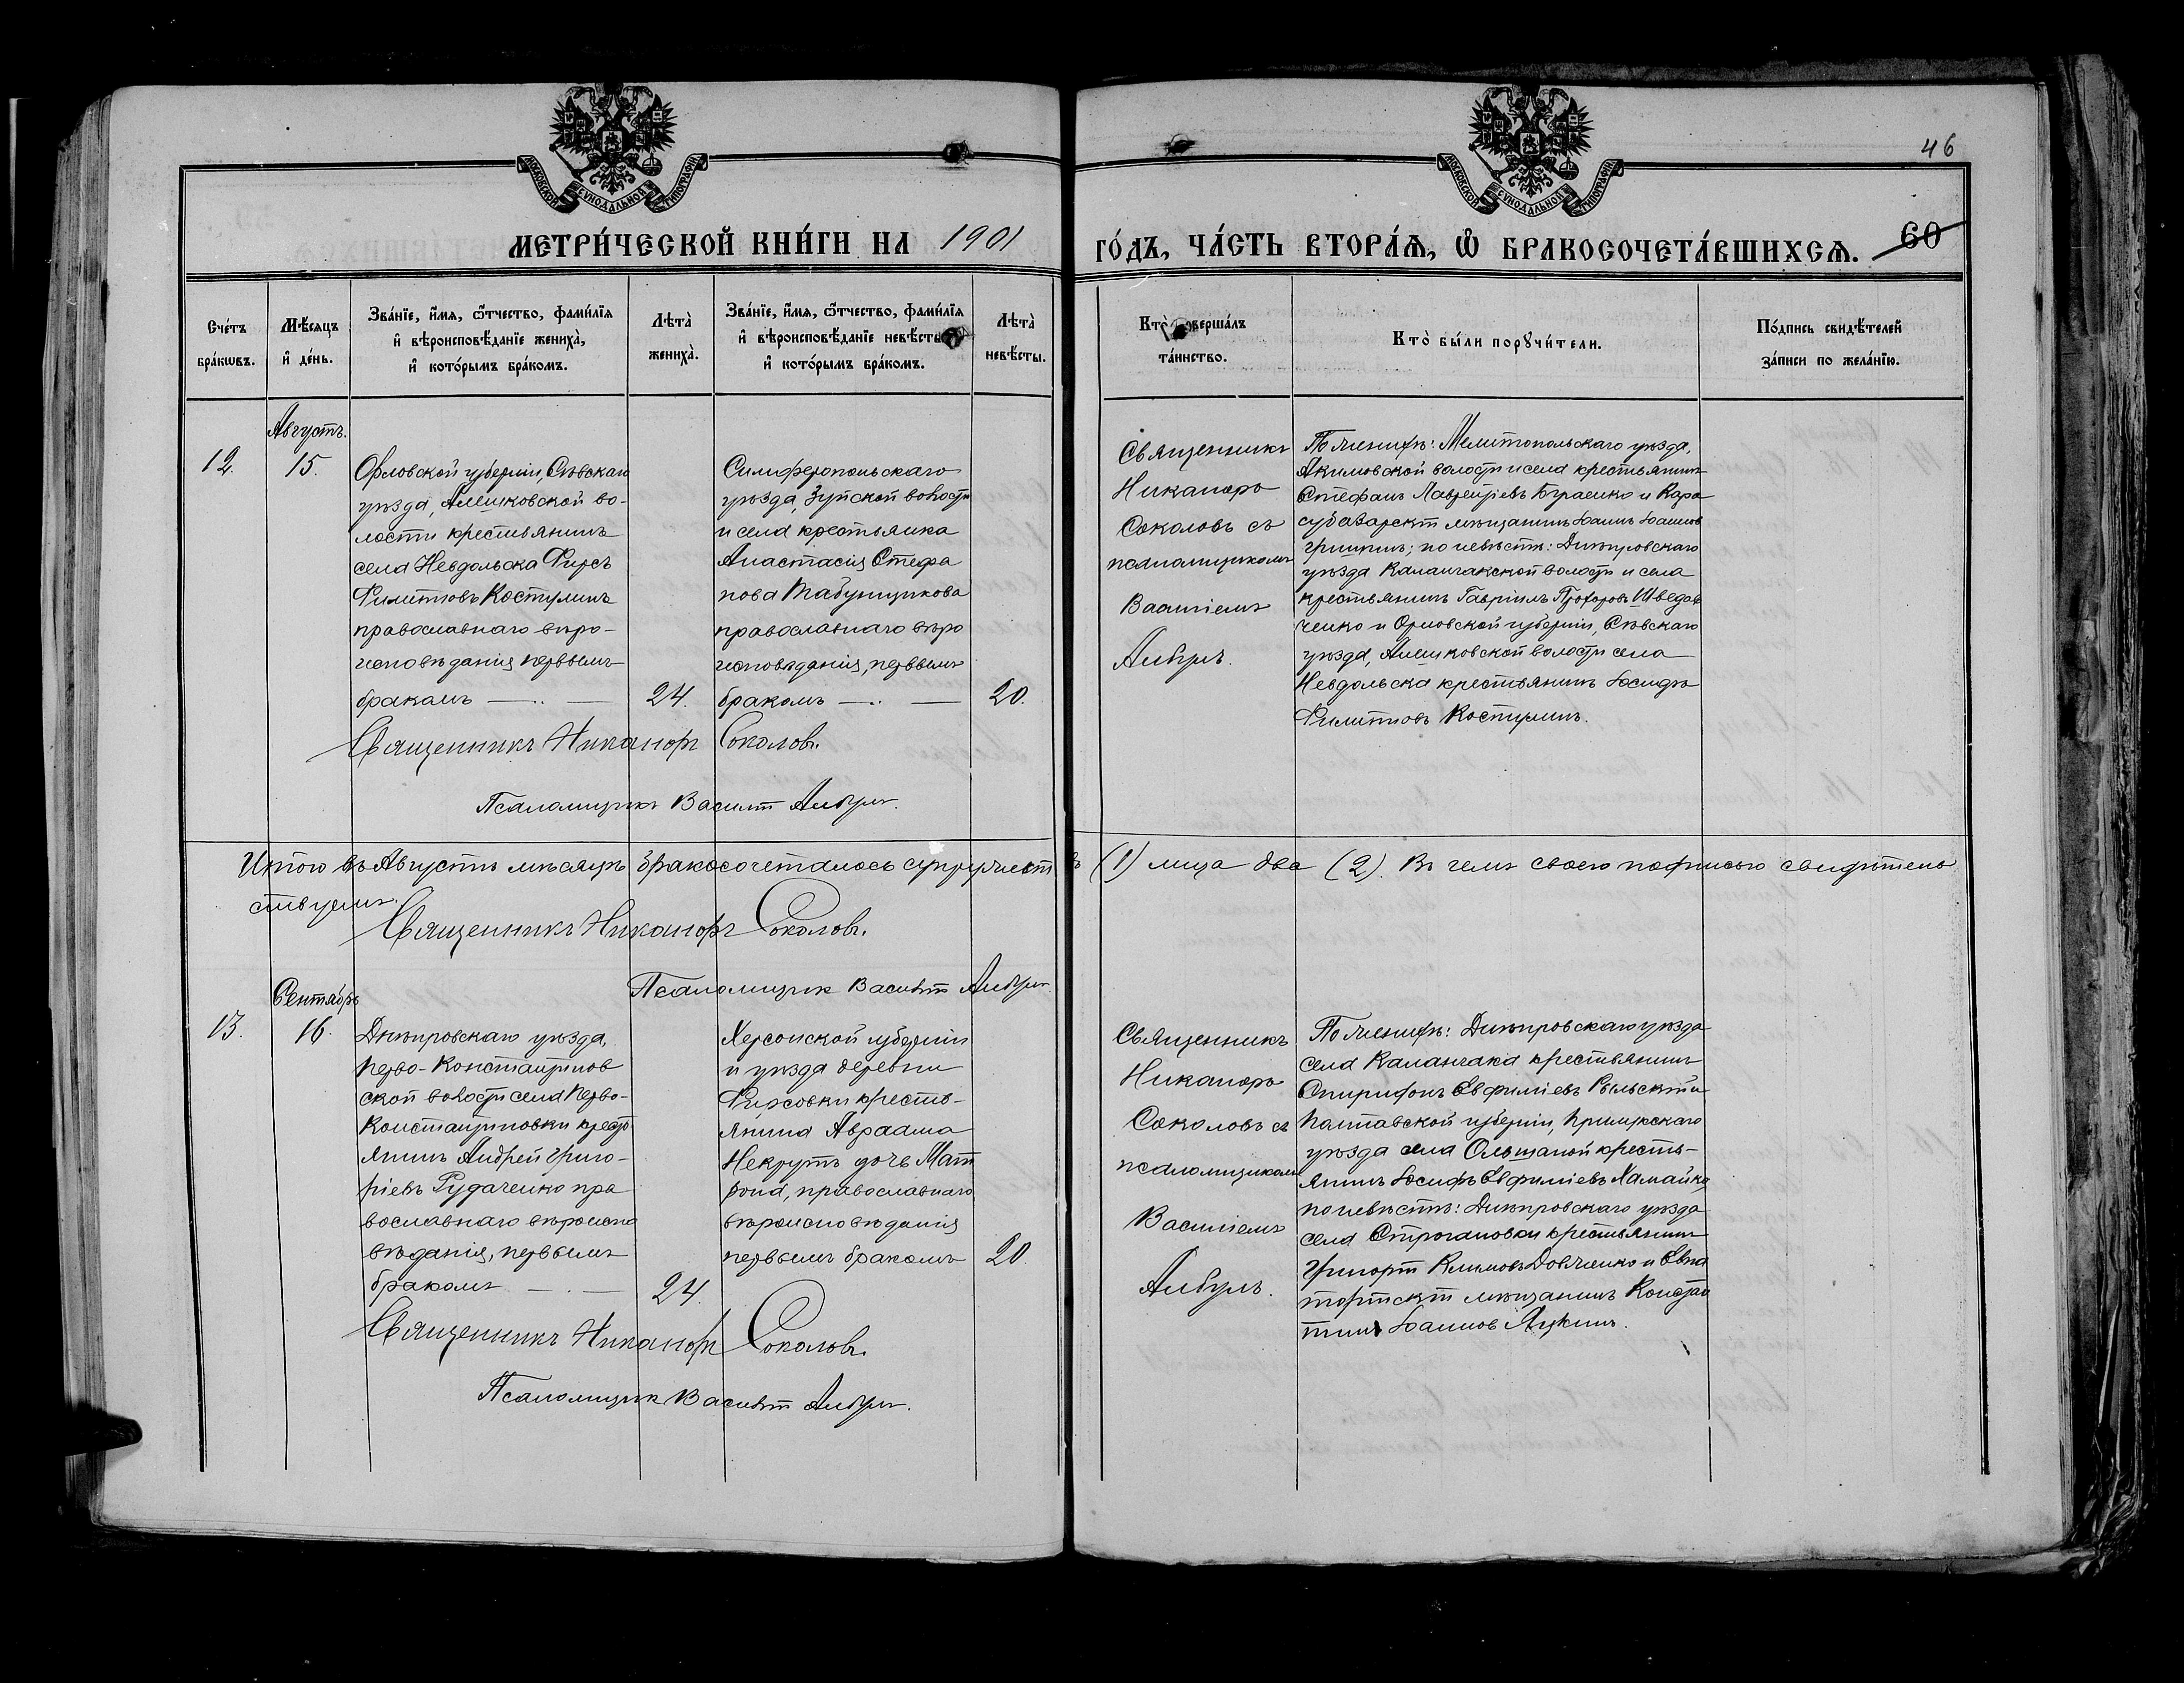 46
МОСКОВСКОЙ СУНОДАЛЬНОЙ ТИПОГРАФІИ
МОСКОВСКОЙ СУНОДАЛЬНОЙ ТИПОГРАФІИ
МЕТРИ́ЧЕСКОЙ КНИ́ГИ НА 1901
ГО́ДЪ, ЧА́СТЬ ВТОРА́Ѧ, Ѽ БРАКОСОЧЕТА́ВШИХСѦ. 60
Сче́тъ бра́кωвъ.
Мѣ́сяцъ и҆ де́нь.
Зва́нїе, и҆́мя, ѻ҆́тчество, фами́лїя
и҆ вѣроисповѣ́данїе жениха̀,
и҆ кото́рымъ бра́комъ.
Лѣта̀ жениха̀.
Зва́нїе, и҆́мя, ѻ҆́тчество, фами́лїя
и҆ вѣроисповѣ́данїе невѣ́сты,
и҆ кото́рымъ бра́комъ.
Лѣта̀ невѣ́сты.
Кто̀ соверша́лъ
та́инство.
Кто̀ бы́ли порꙋчи́тели.
По́дпись свидѣ́телей
за́писи по жела́нїю.
Августъ.
12. 15.
Орловской губерніи, Сѣвскаго
уѣзда, Алешковской во-
лости крестьянинъ
села Невдольска Фирсъ
Филитовъ Костулинъ
православнаго вѣро-
исповѣданія первымъ
бракомъ
24.
Симферопольскаго
уѣзда, Зуйской волости
и села крестьянка
Анастасія Стефа
нова Табунщикова
православнаго вѣро
исповѣданія, первымъ
бракомъ
20.
Священникъ
Никаноръ
Соколовъ съ
псаломщикомъ
Василіемъ
Албулъ.
По женихѣ: Мелитопольскаго уѣзда,
Акимовской волости и села крестьянинъ
Стефанъ Лаврентіевъ и Кара
субазарскій мѣщанинъ Іоаннъ Іоанновъ
Гришинъ; по невѣстѣ: Днѣпровскаго
уѣзда Каланчакской волости и села
крестьянинъ Гавріилъ Прохоровъ Шведов
ченко и Орловской губерніи, Сѣвскаго
уѣзда, Алешковской волости села
Невдольска крестьянинъ Іосифъ
Филитовъ Костулинъ.
Священникъ Никаноръ Соколовъ.
Псаломщикъ Василій Албулъ.
Итого въ Августѣ мѣсяцѣ бракосочеталось супружествъ (1) лица два (2). Въ чемъ своею подписью свидѣтель
ствуемъ.
Священникъ Никаноръ Соколовъ.
Псаломщикъ Василій Албулъ.
Сентябрь
13. 16.
Днѣпровскаго уѣзда,
Перво-Константинов
ской волости села Перво-
Константиновки крест
янинъ Андрей Григо-
ріевъ Рудаченко пра
вославнаго вѣроиспо
вѣданія, первымъ
бракомъ
24.
Херсонской губерніи
и уѣзда деревни
Фирсовки кресть-
янина Авраама
Некрутъ дочь Мат
рона, православнаго
вѣроисповѣданія
первымъ бракомъ
20.
Священникъ
Никаноръ
Соколовъ съ
псаломщикомъ
Василіемъ
Албулъ.
По женихѣ: Днѣпровскаго уѣзда
села Каланчака крестьянинъ
Спиридонъ Евфиміевъ Рыльскій и
Полтавской губерніи, Прилукскаго
уѣзда села Ольшаной кресть-
янинъ Іосифъ Евфиміевъ Хамайко,
по невѣстѣ: Днѣпровскаго уѣзда
села Строгановки крестьянинъ
Григорій Климовъ Довженко и Евпа
торійскій мѣщанинъ Констан
тинъ Іоанновъ Яцкинъ.
Священникъ Никаноръ Соколовъ.
Псаломщикъ Василій Албулъ.